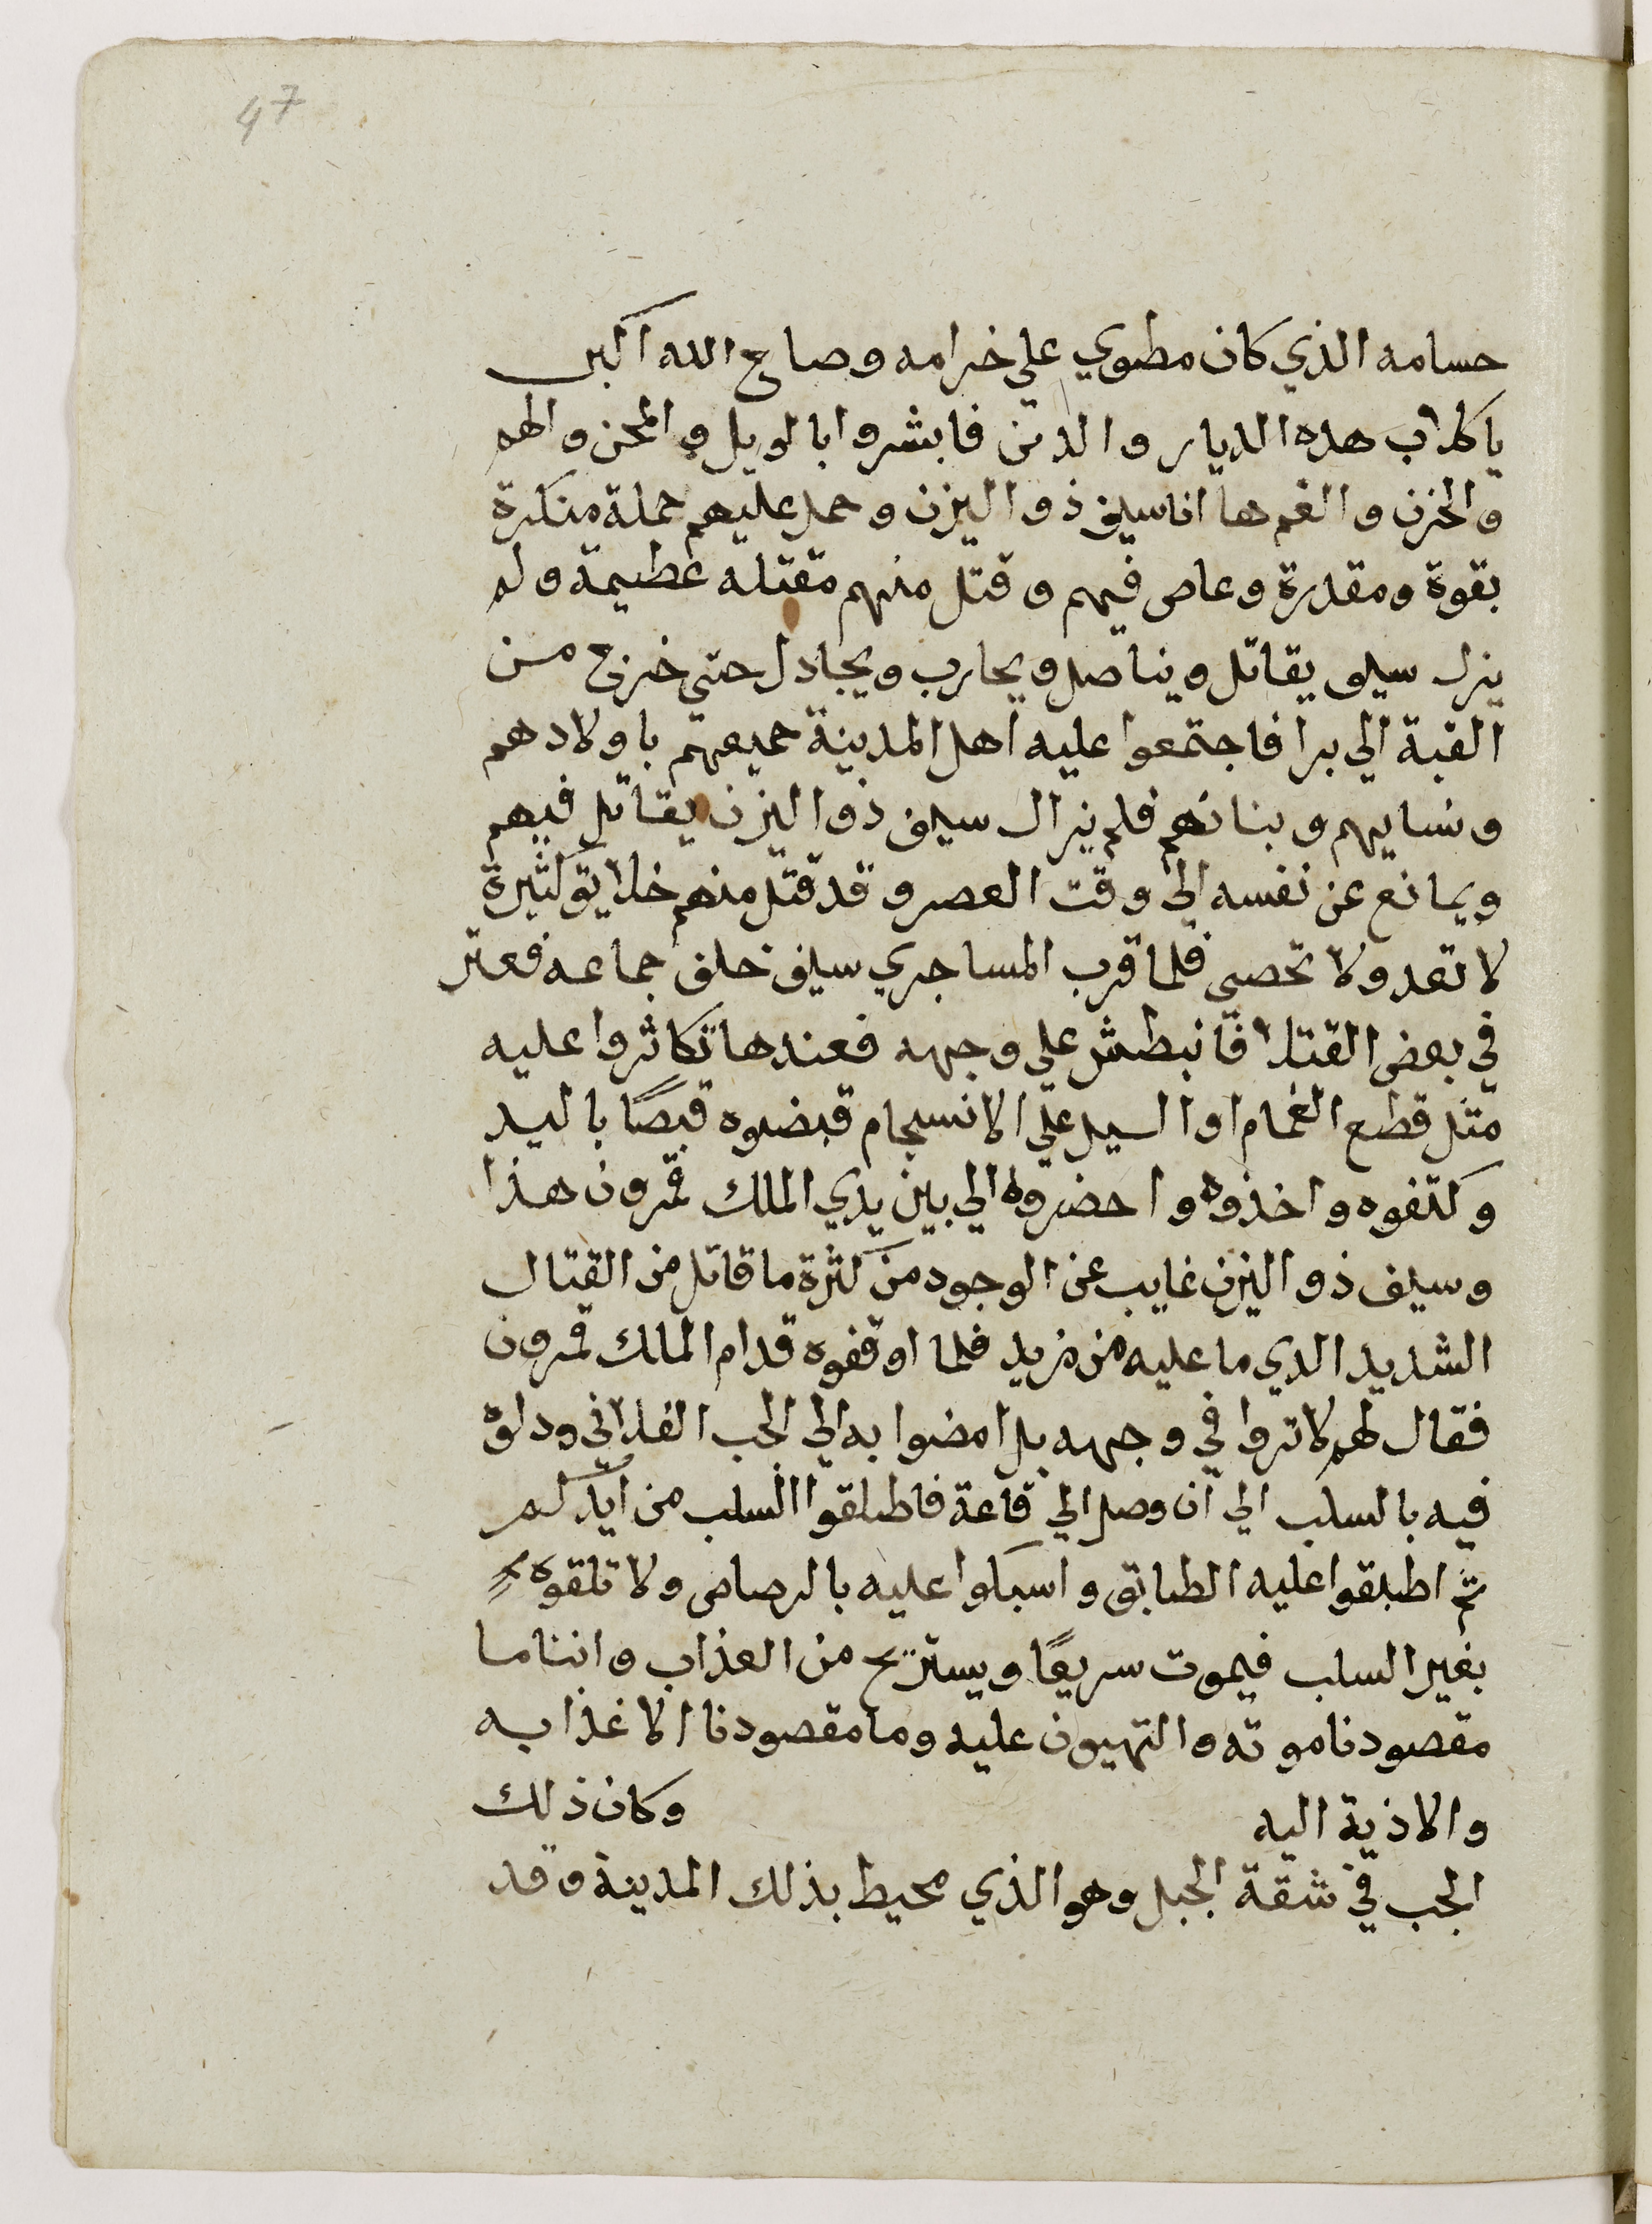 47
حسامه الذي كان مطوي علي خرامه وصاح الله اكبر
يا كلاب هده الديار والدمن فابشروا بالويل والمحن والهم
والحزن والغم ها انا سيف ذو اليزن وحمل عليهم حملة منكرة
بقوة ومقدرة وعاص فيهم وقتل منهم مقتله عظيمة ولم
يزل سيف يقاتل ويناصل ويحارب ويجادل حتي خرج من
القبة الي برا فاجتمعوا عليه اهل المدينة جميعهم باولادهم
ونسايهم وبناتهم فلم يزال سيف ذو اليزن يقاتل فيهم
ويمانع عن نفسه الي وقت العصر وقد قتل منهم خلايق كثيرة
لا تعد ولا تحصي فلما قرب المسا جري سيف خلف جماعه فعتر
في بعض القتلا فانبطش علي وجهه فعندها تكاثروا عليه
مثل قطع الغمام او السيل علي الانسجام قبضوه قبصًا باليد
وكتفوه واخذوه واحضروه الي بين يدي الملك قمرون هذا
وسيف ذو اليزن غايب عن الوجود من كثرة ما قاتل من القتال
الشديد الدي ما عليه من مزيد فلما اوقفوه قدام الملك قمرون
فقال لهم لا تروا في وجهه بل امضوا به الي الجب الفلاني ودلوه
فيه بالسلب الي ان وصل الي قاعة فاطلقوا السلب من ايدكم
ثم اطبقوا عليه الطابق واسبكوا عليه بالرصاص ولا تلقوه
بغير السلب فيموت سريعًا ويستريح من العذاب واننا ما
مقصودنا موته والتهيون عليه وما مقصودنا الا غذابه
والاذية اليه وكان ذلك
الجب في شقة الجبل وهو الذي محيط بذلك المدينة وقد